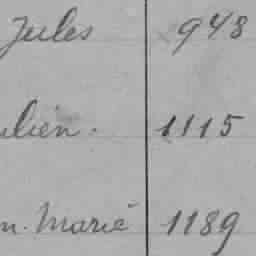 Jules 948
ulien. 1115
n. Marié 1189